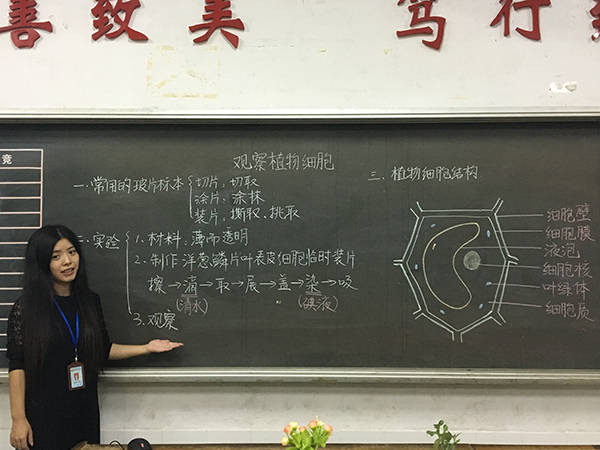 善致美 笃行
竞
观察植物细胞
一.常用的玻片标本
切片:切取
涂片:涂抹
装片:撕取.挑取
二.实验
1.材料:薄而透明
2.制作洋葱鳞片叶表皮细胞临时装片
擦→滴→取→展→盖→染→吸
(清水) (碘液)
3.观察
三.植物细胞结构
细胞壁
细胞膜
液泡
细胞核
叶绿体
细胞质